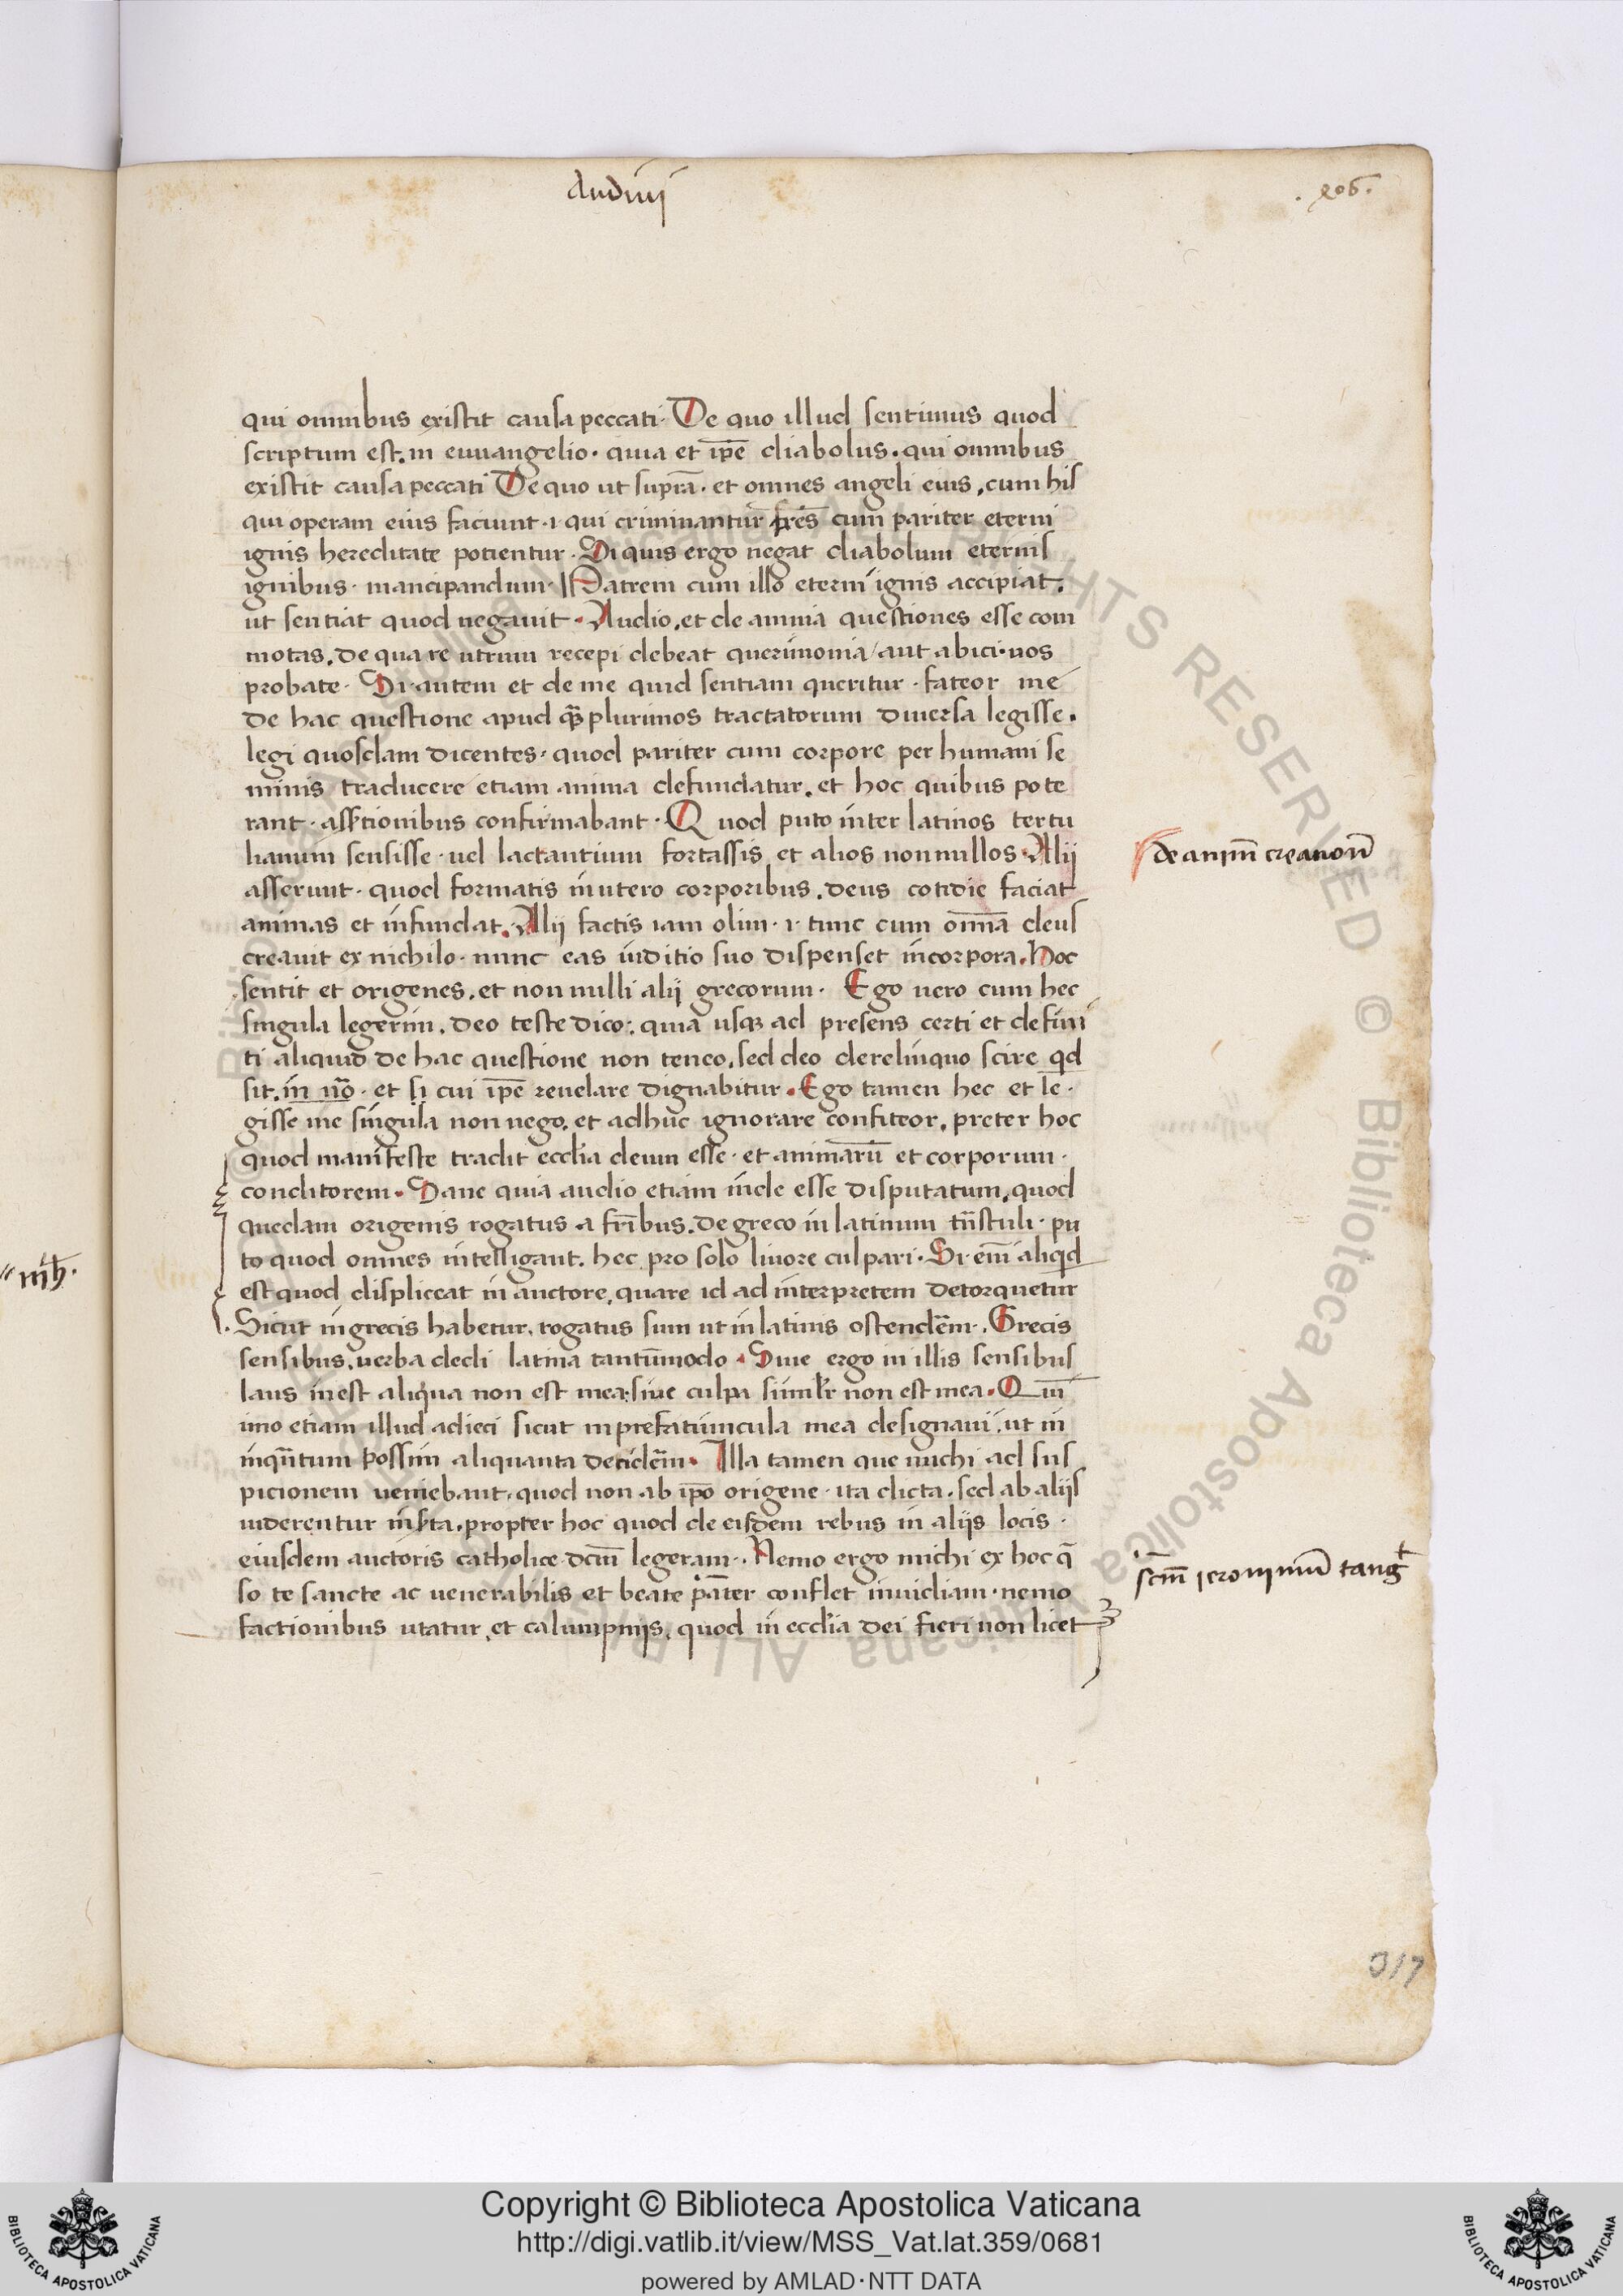 .206.
qui omnibus existit causa peccati. De quo illud sentimus quod
scriptum est. in euuangelio. quia et ip̅e diabolus. qui omnibus
existit causa peccati De quo ut supra̅. et omnes angeli eius, cum his
qui operam eius faciunt .i. qui criminantur fr̅es cum pariter eterni
ignis hereditate potientur. Si quis ergo negat diabolum eternis
ignibus. mancipandum. Patrem cum illo eterni ignis accipiat.
ut sentiat quod negauit. Audio, et de anima questiones esse com
motas. de qua re utrum recepi debeat querimonia / aut abici. uos
probate. Si autem et de me quid sentiam queritur. fateor me
de hac questione apud qua̅plurimos tractatorum diuersa legisse.
legi quosdam dicentes. quod pariter cum corpore per humani se
minis traducere etiam anima defundatur. et hoc quibus pote
rant. assertionibus confirmabant. Quod puto inter latinos tertu
lianum sensisse. uel lactantium fortassis et alios nonnullos. Alij
asserunt. quod formatis in utero corporibus. deus cotidie faciat
animas et infundat. Alij factis iam olim .i. tunc cum om̅ia deus
creauit ex nichilo. nunc eas iuditio suo dispenset in corpora. Hoc
sentit et origenes. et non nulli alij grecorum. Ego uero cum hec
singula legerim. deo teste dico: quia usq; ad presens certi et defini
ti aliquid de hac questione non teneo. sed deo derelinquo scire qd
sit. in ur̅o. et si cui ip̅e reuelare dignabitur. Ego tamen hec et le.
gisse me singula non nego. et adhuc ignorare confiteor. preter hoc
quod manifeste tradit eccl̅ia deum esse. et animaru̅ et corporum.
conditorem. Sane quia audio etiam inde esse disputatum, quod
quedam origenis rogatus a fr̅ibus. de greco in latinum tr̅nstuli. pu
to quod omnes intelligant. hec pro solo liuore culpari. Si eni̅ aliqid
est quod displiceat in auctore, quare id ad interpretem detorquetur
Sicut in grecis habetur. rogatus sum ut in latinis ostende̅m. Grecis
sensibus. uerba dedi latina tantu̅modo. Siue ergo in illis sensibus
laus inest aliqua non est mea. siue culpa simil̅r non est mea. Qui̅
imo etiam illud adieci sicut in prefatiuncula mea designaui. ut in
inqua̅tum possim aliquanta decide̅m. Illa tamen que michi ad sus
picionem ueniebant. quod non ab ip̅o origene. ita dicta. sed ab aliis
uiderentur inserta. propter hoc quod de eisdem rebus in aliis locis.
eiusdem auctoris catholice dc̅m legeram. Nemo ergo michi ex hoc q̅
so te sancte ac uenerabilis et beate pa̅ter conflet inuidiam. nemo
factionibus utatur, et calumpnijs, quod in eccl̅ia dei fieri non licet
de anim̅ creation̅
sc̅m ieronimu̅ tangit
317
Copyright © Biblioteca Apostolica Vaticana
http://digi.vatlib.it/view/MSS_Vat.lat.359/0681
powered by AMLAD·NTT DATA
BIBLIOTECA APOSTOLICA VATICANA
BIBLIOTECA APOSTOLICA VATICANA